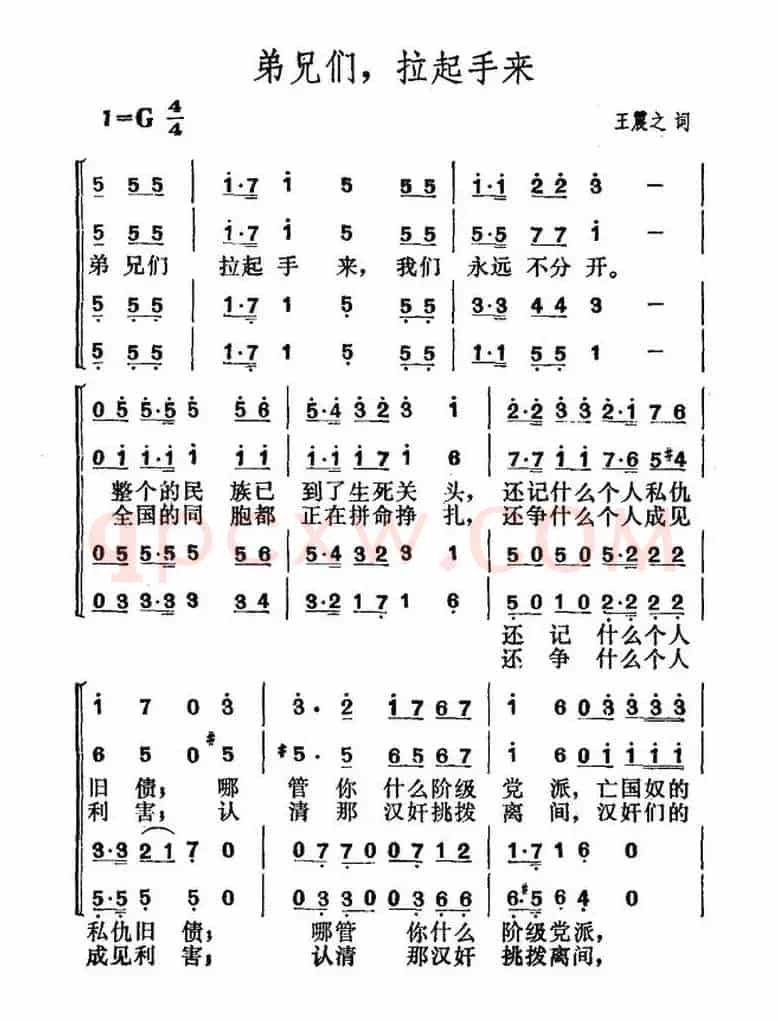 弟兄们，拉起手来
1=G 4/4
王震之 词
5 5 5 1·7 1 5 5 5 1·1 2 2 3 －
5 5 5 1·7 1 5 5 5 5·5 7 7 1 －
弟兄们 拉起手 来，我们 永远 不分 开。
5 5 5 1·7 1 5 5 5 3·3 4 4 3 －
5 5 5 1·7 1 5 5 5 1·1 5 5 1 －
0 5 5·5 5 5 6 5·4 3 2 3 1 2·2 3 3 2·1 7 6
0 1 1·1 1 1 1 1·1 1 7 1 6 7·7 1 1 7·6 5 #4
整个的民 族已 到了生死关 头，还记什么个人私仇
全国的同 胞都 正在拼命挣 扎，还争什么个人成见
qpcxw.COM
0 5 5·5 5 5 6 5·4 3 2 3 1 5 0 5 0 5·2 2 2
0 3 3·3 3 3 4 3·2 1 7 1 6 5 0 1 0 2·2 2 2
还 记 什么个人
还 争 什么个人
1 7 0 3 3· 2 1 7 6 7 1 6 0 3 3 3
6 5 0 #5 #5· 5 6 5 6 7 6 6 0 1 1 1
旧 债；哪 管 你 什么阶级 党 派，亡国奴的
利 害；认 清 那 汉奸挑拨 离 间，汉奸们的
3·3 2 1 7 0 0 7 7 0 0 7 1 2 1·7 1 6 0
5·5 5 5 0 0 3 3 0 0 3 6 6 6·#5 6 4 0
私仇旧 债； 哪管 你什么 阶级党派，
成见利 害； 认清 那汉奸 挑拨离间，